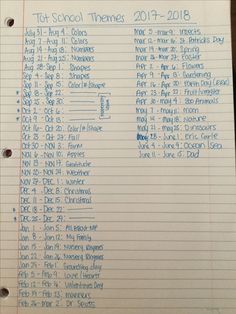 Tot School Themes 2017-2018
July 31 - Aug 4 - Colors
Aug 7 - Aug 11 - Colors
Aug 14 - Aug 18 - Numbers
Aug 21 - Aug 25 - Numbers
Aug 28 - Sep 1 - Shapes
Sep 4 - Sep 8 - Shapes
Sep 11 - Sep 15 - Color/#/Shape
Sep 18 - Sep 22
Sep 25 - Sep 29
Oct 2 - Oct 6
Oct 9 - Oct 13
Oct 16 - Oct 20 - Color/#/Shape
Oct 23 - Oct 27 - Fall
Oct 30 - Nov 3 - Farm
Nov 6 - Nov 10 - Apples
Nov 13 - Nov 17 - Gratitude
Nov 20 - Nov 24 - Weather
Nov 27 - Dec 1 - Winter
Dec 4 - Dec 8 - Christmas
Dec 11 - Dec 15 - Christmas
Dec 18 - Dec 22
Dec 25 - Dec 29
Jan 1 - Jan 5 - All About Me
Jan 8 - Jan 12 - My Family
Jan 15 - Jan 19 - Nursery Rhymes
Jan 22 - Jan 26 - Nursery Rhymes
Jan 29 - Feb 2 - Groundhog day
Feb 5 - Feb 9 - Love/Heart
Feb 12 - Feb 16 - Valentines Day
Feb 19 - Feb 23 - Manners
Feb 26 - Mar 2 - Dr. Seuss
Mar 5 - Mar 9 - Insects
Mar 12 - Mar 16 - St. Patrick's Day
Mar 19 - Mar 23 - Spring
Mar 26 - Mar 30 - Easter
Apr 2 - Apr 6 - Flowers
Apr 9 - Apr 13 - Gardening
Apr 16 - Apr 20 - Earth Day
Apr 23 - Apr 27 - Fruit/Veggies
Apr 30 - May 4 - Zoo Animals
May 7 - May 11 - Mom
May 14 - May 18 - Nature
May 21 - May 25 - Dinosaurs
May 28 - June 1 - Eric Carle
June 4 - June 8 - Ocean/Sea
June 11 - June 15 - Dad